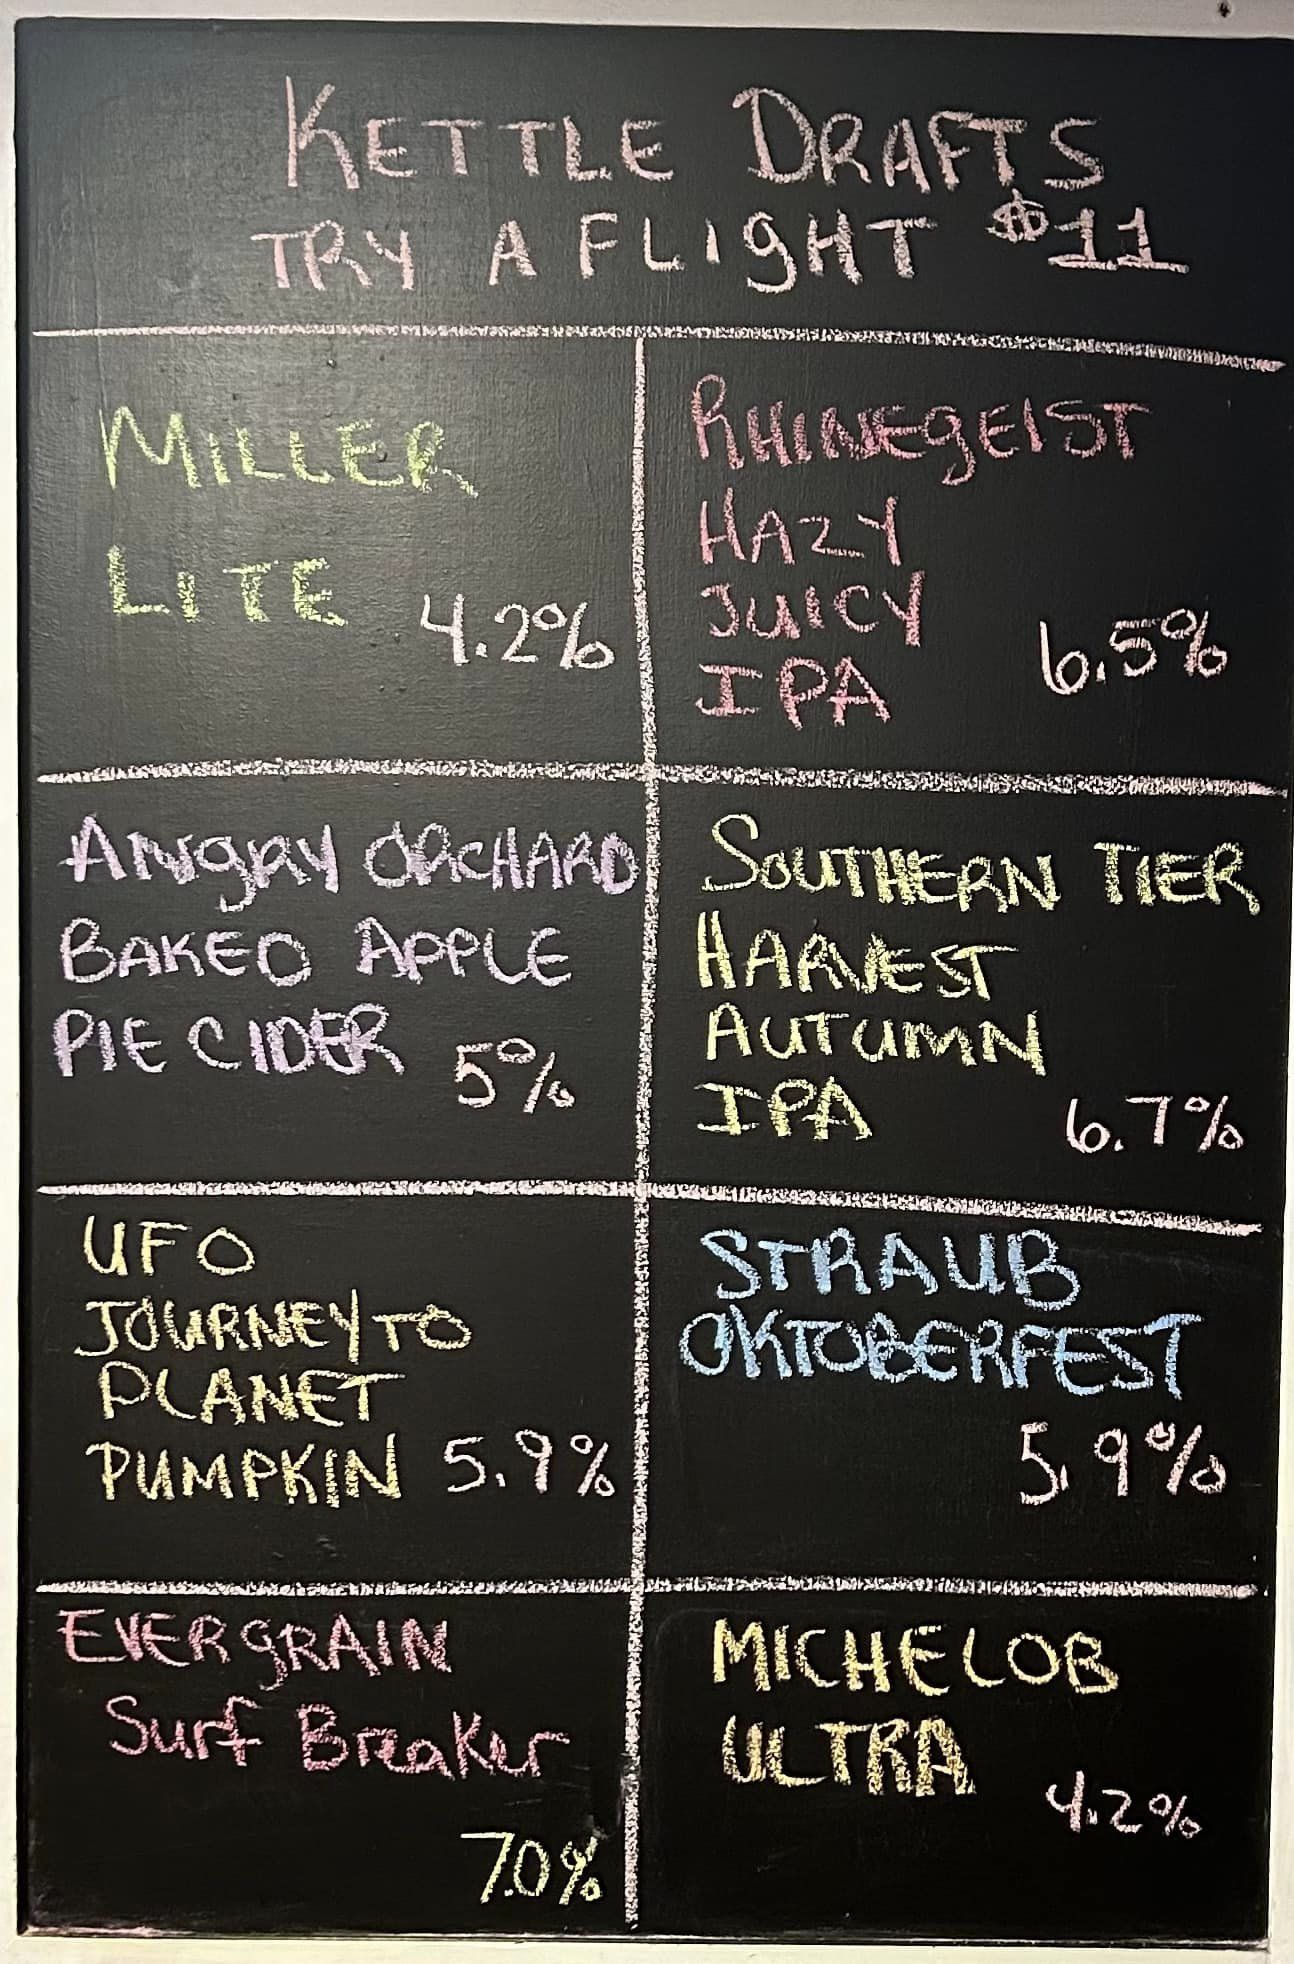 KETTLE DRAFTS
TRY A FLIGHT $11
MILLER
LITE 4.2%
RHINEGEIST
HAZY
JUICY
IPA 6.5%
ANGRY ORCHARD
BAKED APPLE
PIE CIDER 5%
SOUTHERN TIER
HARVEST
AUTUMN
IPA 6.7%
UFO
JOURNEY TO
PLANET
PUMPKIN 5.9%
STRAUB
OKTOBERFEST
5.9%
EVERGRAIN
Surf Breaker
7.0%
MICHELOB
ULTRA 4.2%